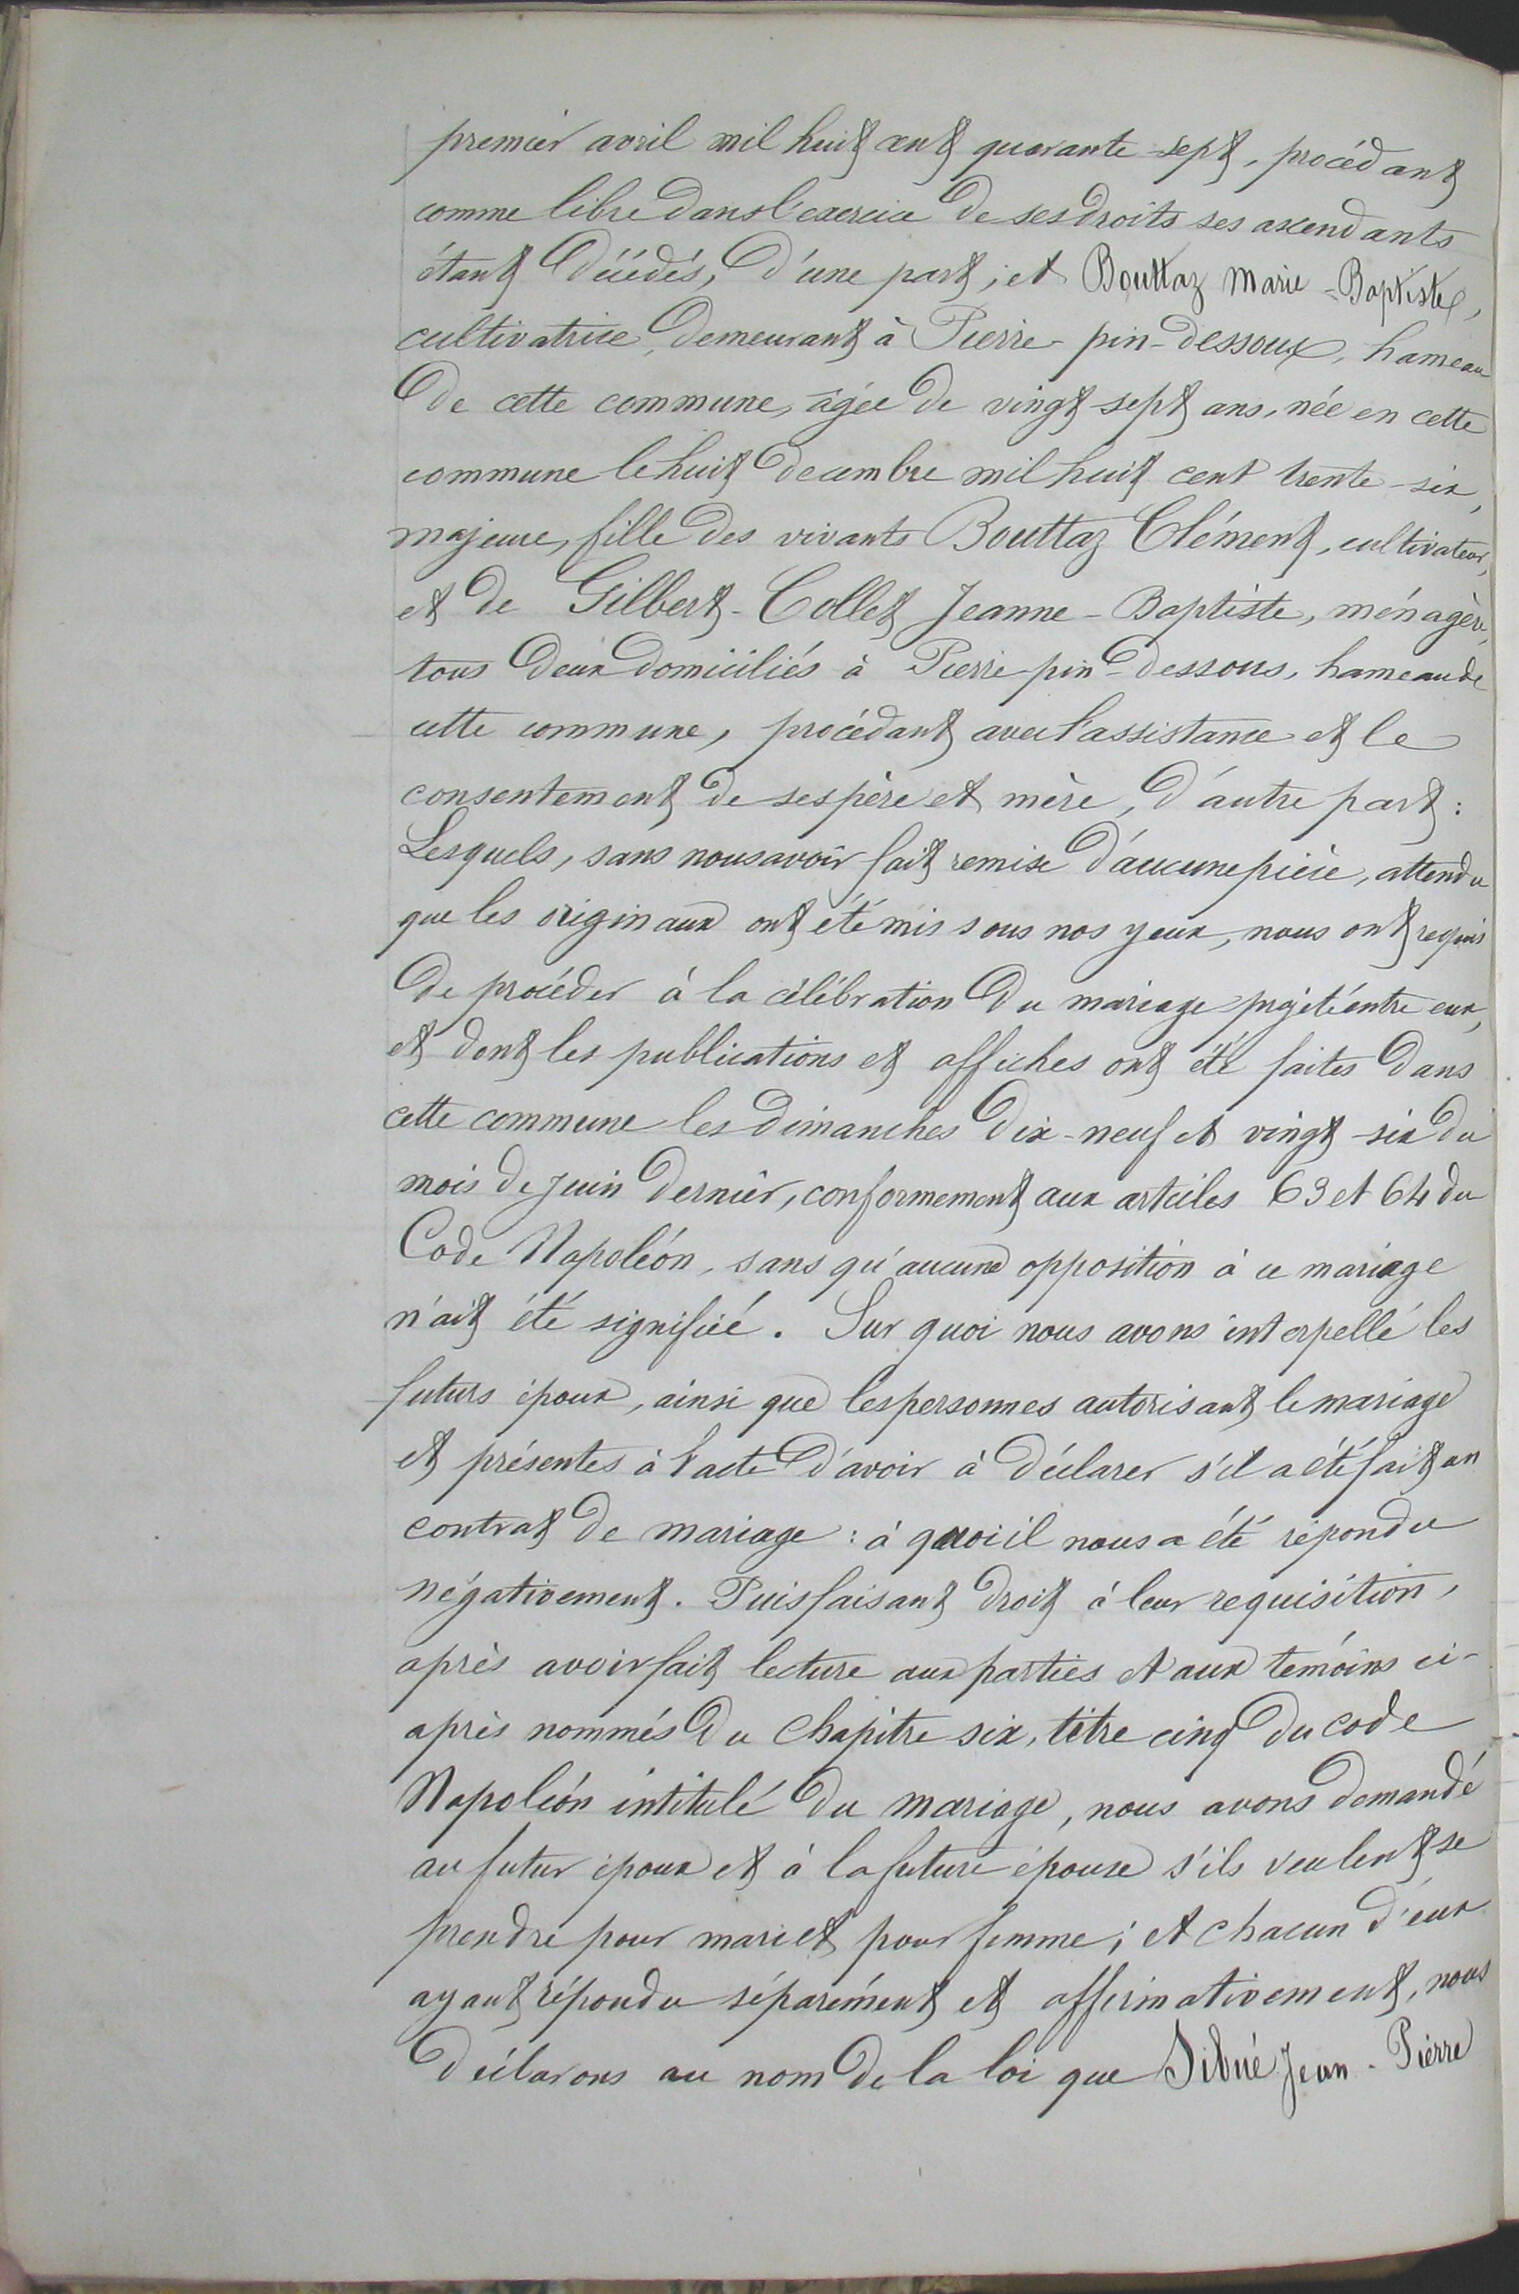 premier avril mil huit cent quarante-sept, procédant
comme libre dans l'exercice de ses droits ses ascendants
étant décédés, d'une part; et Bouttaz Marie-Baptiste,
cultivatrice, demeurant à Pierre-pin-dessoux, hameau
de cette commune, âgée de vingt-sept ans, née en cette
commune le huit décembre mil huit cent trente-six,
majeure, fille des vivants Bouttaz Clément, cultivateur,
et de Gilbert-Collet Jeanne-Baptiste, ménagère,
tous deux domiciliés à Pierre-pin-dessous, hameau de
cette commune, procédant avec l'assistance et le
consentement de ses père et mère, d'autre part:
Lesquels, sans nous avoir fait remise d'aucune pièce, attendu
que les originaux ont été mis sous nos yeux, nous ont requis
de procéder à la célébration du mariage projeté entre eux,
et dont les publications et affiches ont été faites dans
cette commune les dimanches dix-neuf et vingt-six du
mois de juin dernier, conformement aux articles 63 et 64 du
Code Napoléon, sans qu'aucune opposition à ce mariage
n'ait été signifiée. Sur quoi nous avons interpellé les
futurs époux, ainsi que les personnes autorisant le mariage
et présentes à l'acte d'avoir à déclarer s'il a été fait un
contrat de mariage: à quoi il nous a été répondu
négativement. Puis faisant droit à leur requisition,
après avoir fait lecture aux parties et aux témoins ci-
après nommés du chapitre six, titre cinq du code
Napoléon intitulé du mariage, nous avons demandé
au futur époux et à la future épouse s'ils veulent se
prendre pour mari et pour femme; et chacun d'eux
ayant répondu séparément et affirmativement, nous
déclarons au nom de la loi que Sibué Jean-Pierre